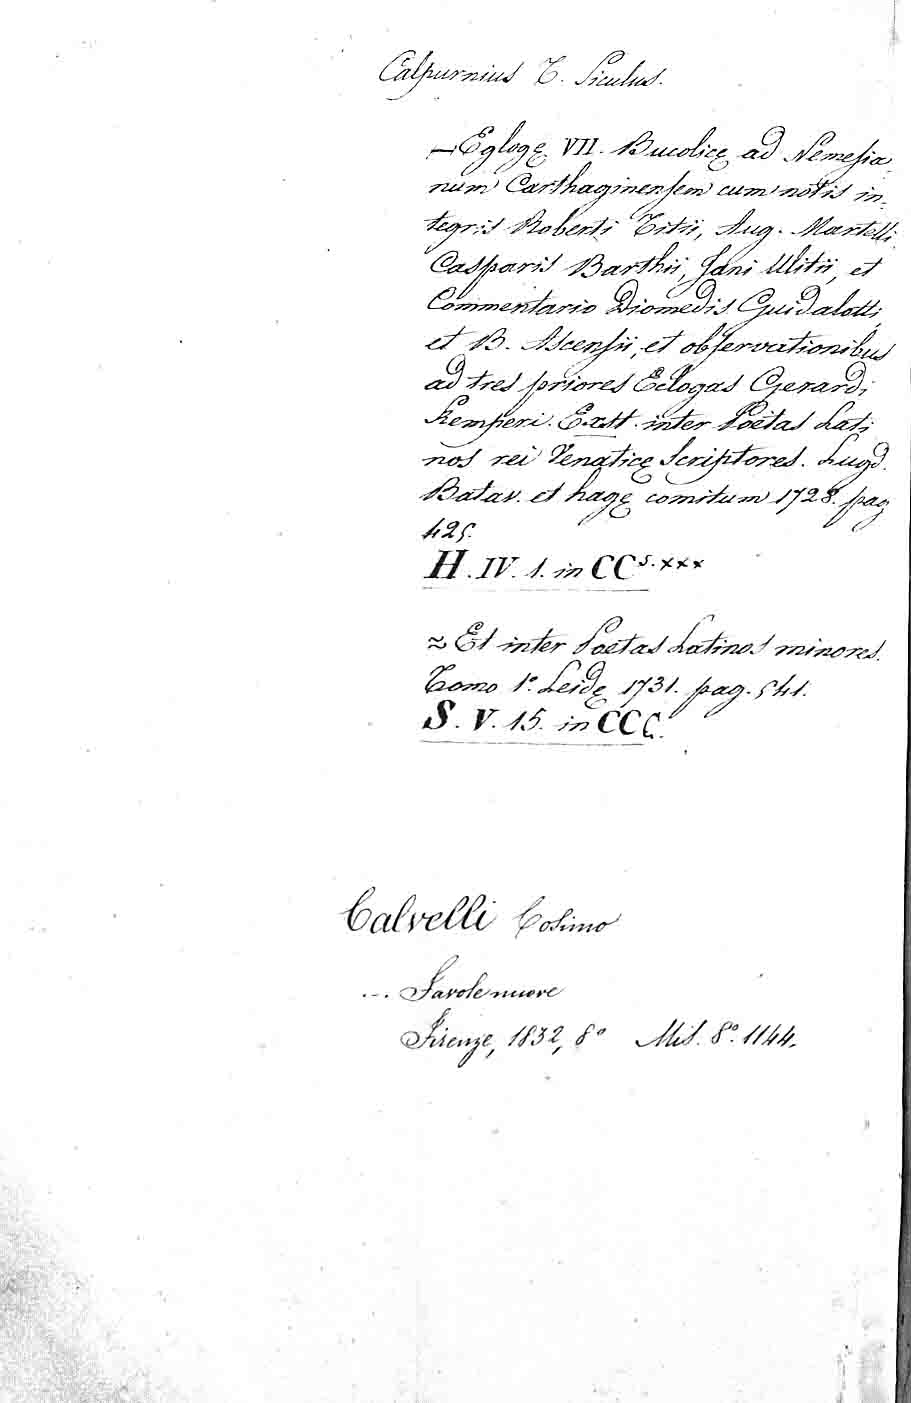 Calpurnius T. Siculus.
— Eglogę VII. Bucolicę ad Nemesia-
num Carthaginensem cum notis in-
tegris Roberti Titii, Aug. Martelli,
Casparis Barthii, Jani Ulitii, et
Commentario Diomedis Guidalotti,
et B. Ascensii, et observationibus
ad tres priores Eclogas Gerardi
Kemperi. Exst. inter Poëtas Lati
nos rei Venaticę Scriptores. Lugd.
Batav. et hagę comitum 1728. pag
425.
H. IV. 1. in CC
≈ Et inter Poetas Latinos minores.
Tomo 1º. Leidę 1731. pag. 541.
S. V. 15. in CCC.
Calvelli Cosimo
... Favole nuove
Firenze, 1832, 8º Mis. 8º. 1144.